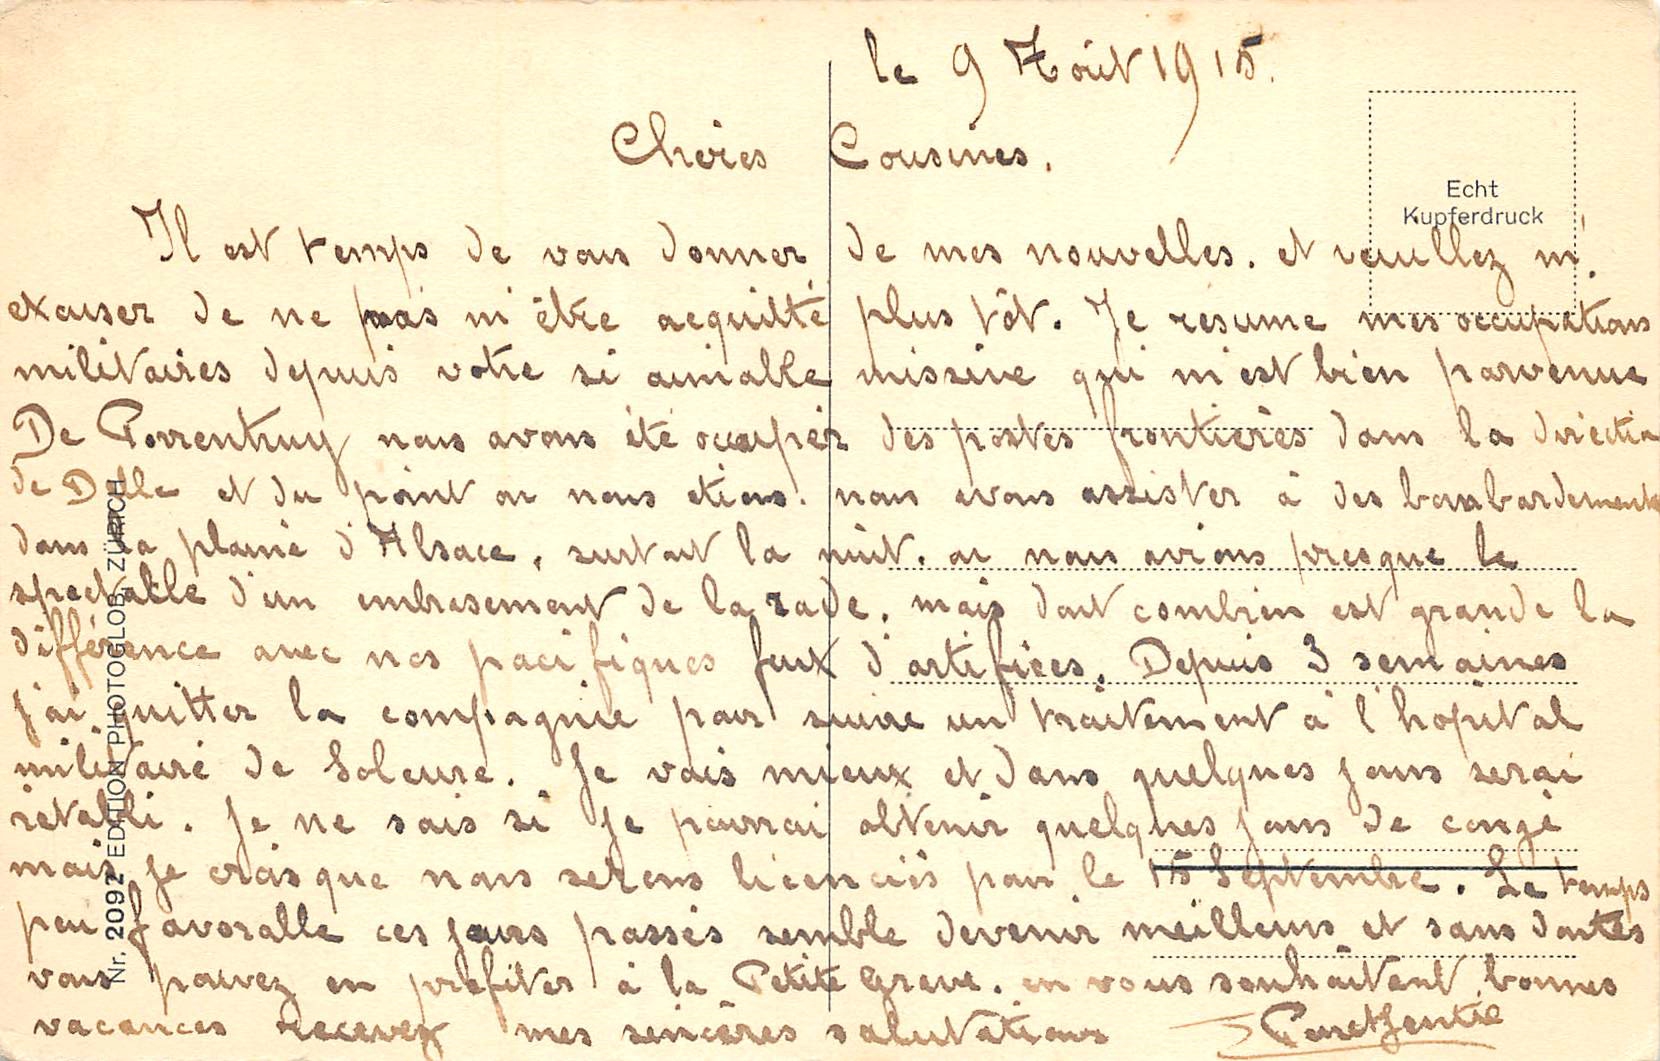 le 9 Août 1915.
Chères Cousines.
Echt
Kupferdruck
Il est temps de vous donner de mes nouvelles. et veuillez m'
excuser de ne pas m'être acquitté plus tôt. Je résume mes occupations
militaires depuis votre si aimable missive qui m'est bien parvenue
De Porrentruy nous avons été occuper des postes frontières dans la direction
de Delle et du point ou nous étions. nous avons assister à des bombardements
dans la plaine d'Alsace, surtout la nuit. ou nous avions presque le
spectacle d'un embrasement de la rade. mais dont combien est grande la
différence avec nos pacifiques feux d'artifices. Depuis 3 semaines
j'ai quitter la compagnie pour suivre un traitement à l'hopital
militaire de Soleure. Je vais mieux et dans quelques jours serai
rétabli. Je ne sais si je pourrai obtenir quelques jours de congé
mais je crois que nous serons licenciés pour le 15 Septembre. Le temps
peu favorable ces jours passés semble devenir meilleur et sans doutes
vous pouvez en profiter à la Petite Grave. en vous souhaitent bonnes
vacances recevez mes sincères salutations
Nr. 2092 EDITION PHOTOGLOB, ZÜRICH